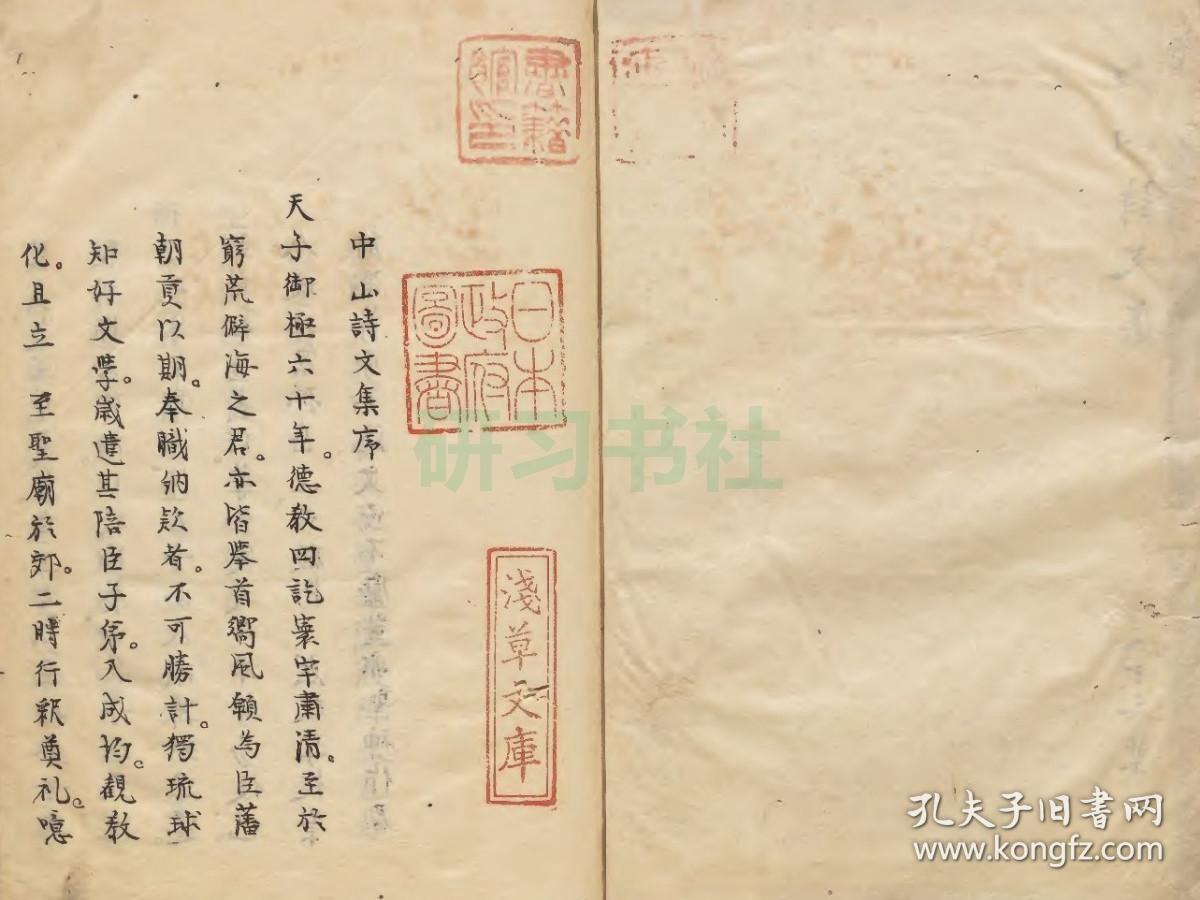 書籍館印
日本政府圖書
淺草文庫
中山詩文集序
天子御極六十年。德教四訖寰宇肅清。至於
窮荒僻海之君。亦皆舉首嚮風願為臣藩
朝貢以期。奉職納款者。不可勝計。獨琉球
知好文學。歲遣其陪臣子弟。入成均。觀教
化。且立 至聖廟於郊。二時行釈奠礼。噫
研习书社
孔夫子旧书网
www.kongfz.com